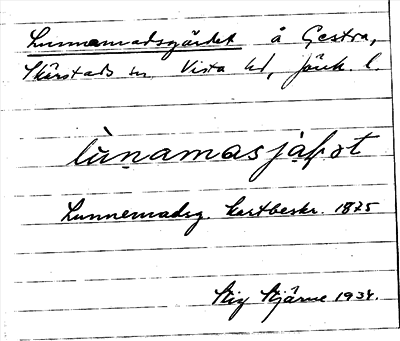 Lunnemadsgärdet å Gestra,
Skärstads sn. Vista hd, Jönk. l.
lùṇamasja̱ṭ
Lunnemadsg. kartbeskr. 1875
Stig Stjärne 1934.